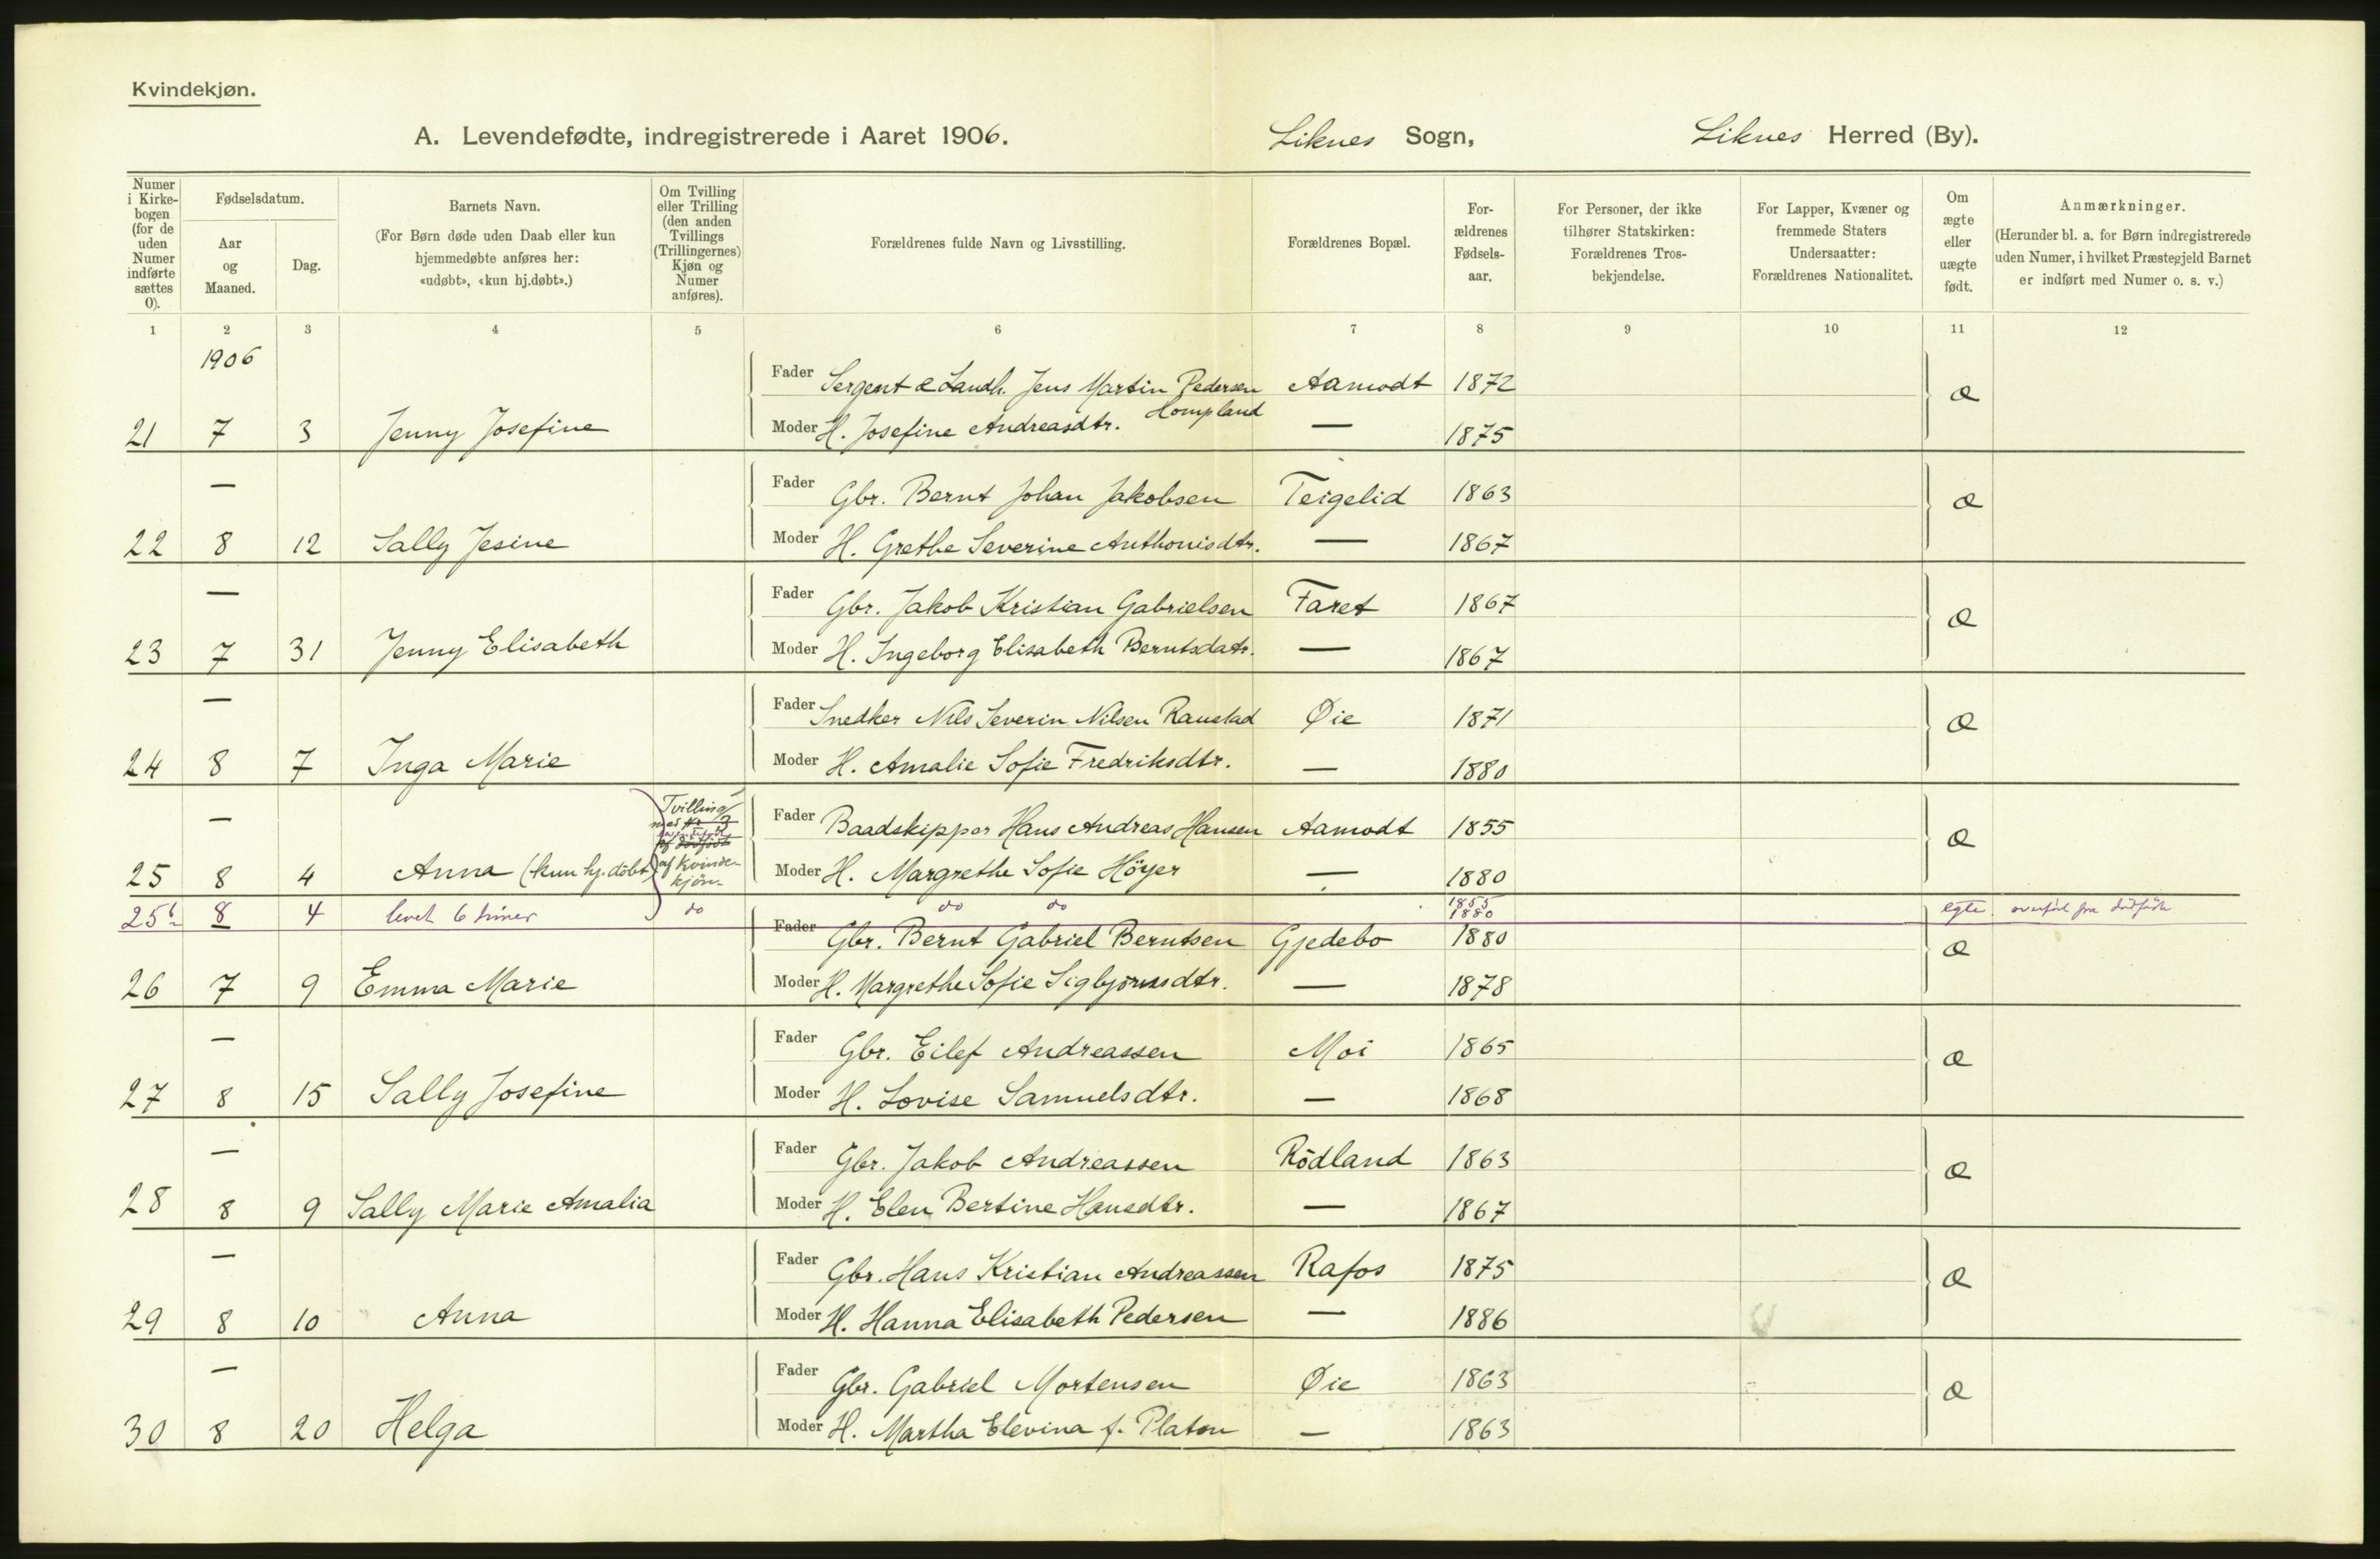 Kvindekjøn.
A. Levendefødte, indregistrerede i Aaret 1906. Liknes Sogn, Liknes Herred (By).
Numer i Kirkebogen (for de uden Numer indførte sættes 0).
Fødselsdatum.
Aar og Maaned.
Dag.
Barnets Navn.
(For Børn døde uden Daab eller kun hjemmedøbte anføres her: «udøbt», «kun hj.døbt».)
Om Tvilling eller Trilling (den anden Tvillings (Trillingernes) Kjøn og Numer anføres).
Forældrenes fulde Navn og Livsstilling.
Forældrenes Bopæl.
Forældrenes Fødselsaar.
For Personer, der ikke tilhører Statskirken: Forældrenes Trosbekjendelse.
For Lapper, Kvæner og fremmede Staters Undersaatter: Forældrenes Nationalitet.
Om ægte eller uægte født.
Anmærkninger.
(Herunder bl. a. for Børn indregistrerede uden Numer, i hvilket Præstegjeld Barnet er indført med Numer o. s. v.)
1 2 3 4 5 6 7 8 9 10 11 12
1906
Fader Sergent & Landh. Jens Martin Pedersen Hompland Aamodt 1872 æ
21 7 3 Jenny Josefine Moder H. Josefine Andreasdtr. — 1875
— Fader Gbr. Bernt Johan Jakobsen Teigelid 1863 æ
22 8 12 Sally Jesine Moder H. Grethe Severine Anthonisdtr. — 1867
— Fader Gbr. Jakob Kristian Gabrielsen Faret 1867 æ
23 7 31 Jenny Elisabeth Moder H. Ingeborg Elisabeth Berntsdatr. — 1867
— Fader Snedker Nils Severin Nilsen Raustad Øie 1871 æ
24 8 7 Inga Marie Moder H. Amalie Sofie Fredriksdtr. — 1880
— Tvilling med af Kvindekjøn- Fader Baadskipper Hans Andreas Hansen Aamodt 1855 æ
25 8 4 Anna (kun hj. döbt) Moder H. Margrethe Sofie Höyer — 1880
25b 8 4 levet 6 timer do do do 1855 1880 egte overført fra dødfødte
Fader Gbr. Bernt Gabriel Berntsen Gjedebo 1880 æ
26 7 9 Emma Marie Moder H. Margrethe Sofie Sigbjörnsdtr. — 1878
— Fader Gbr. Eilef Andreassen Moi 1865 æ
27 8 15 Sally Josefine Moder H. Lovise Samuelsdtr. — 1868
— Fader Gbr. Jakob Andreassen Rödland 1863 æ
28 8 9 Sally Marie Amalia Moder H. Elen Bertine Hansdtr. — 1867
— Fader Gbr. Hans Kristian Andreassen Rafos 1875 æ
29 8 10 Anna Moder H. Hanna Elisabeth Pedersen — 1886
— Fader Gbr. Gabriel Mortensen Øie 1863 æ
30 8 20 Helga Moder H. Martha Elevina f. Platou — 1863